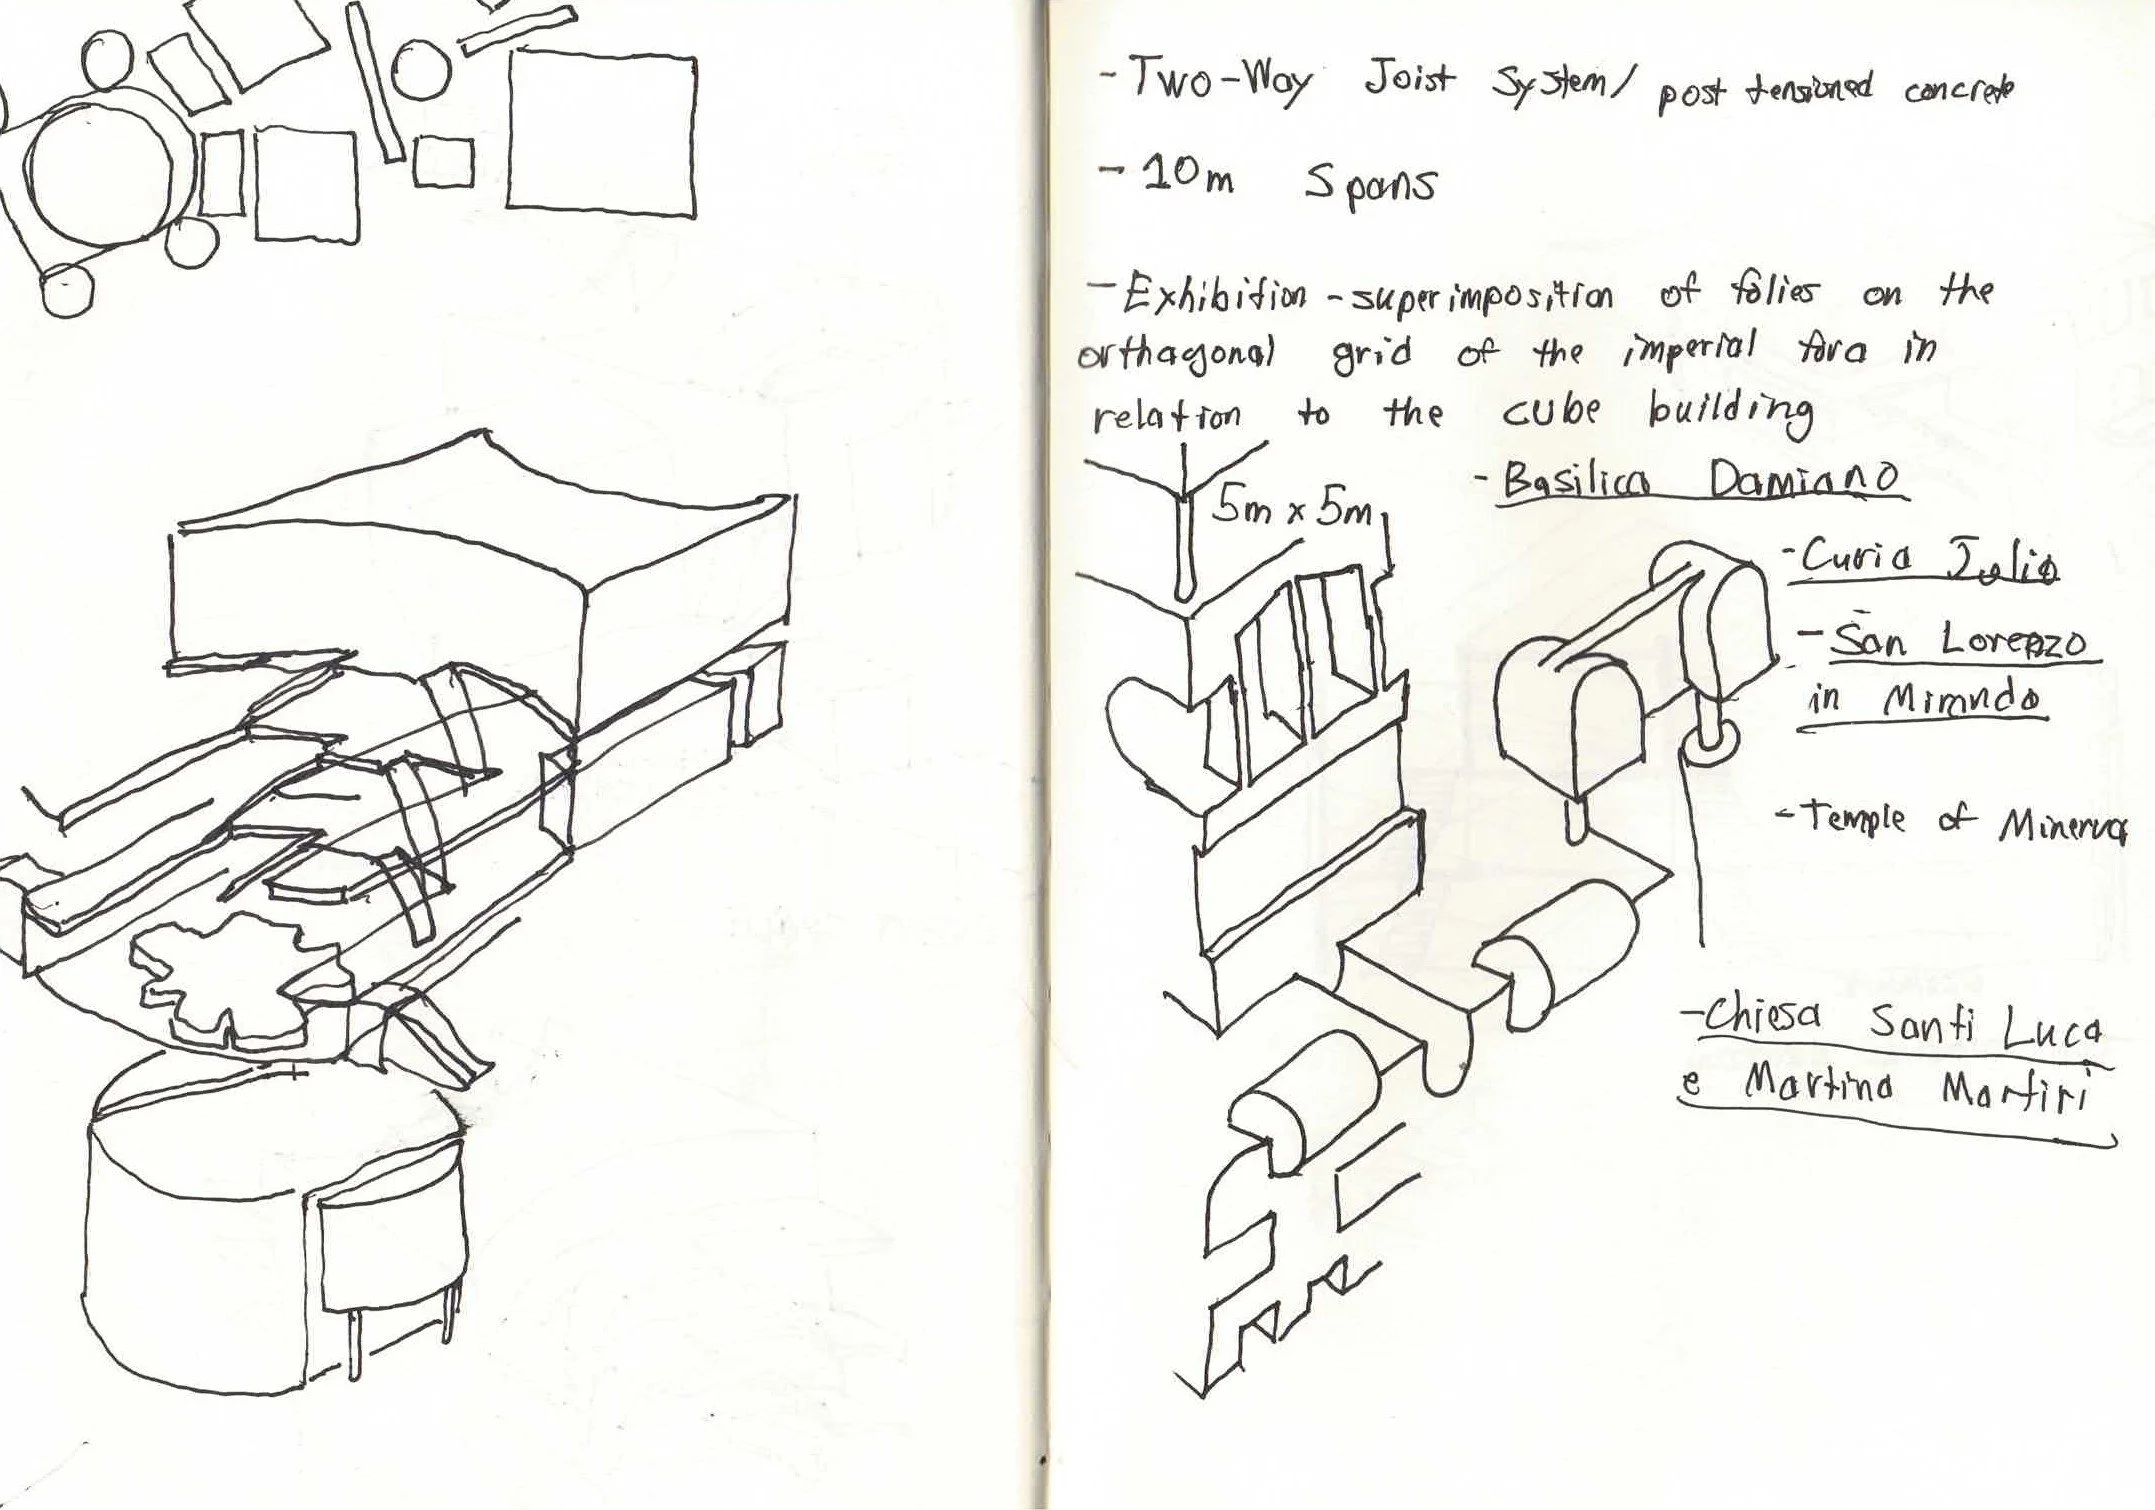 - Two-Way Joist System/ post tensioned concrete
- 10m Spans
- Exhibition - superimposition of folies on the
orthagonal grid of the imperial fora in
relation to the cube building
5m x 5m
- Basilica Damiano
- Curia Julia
- San Lorenzo
in Miranda
- Temple of Minerva
- Chiesa Santi Luca
e Martina Martiri